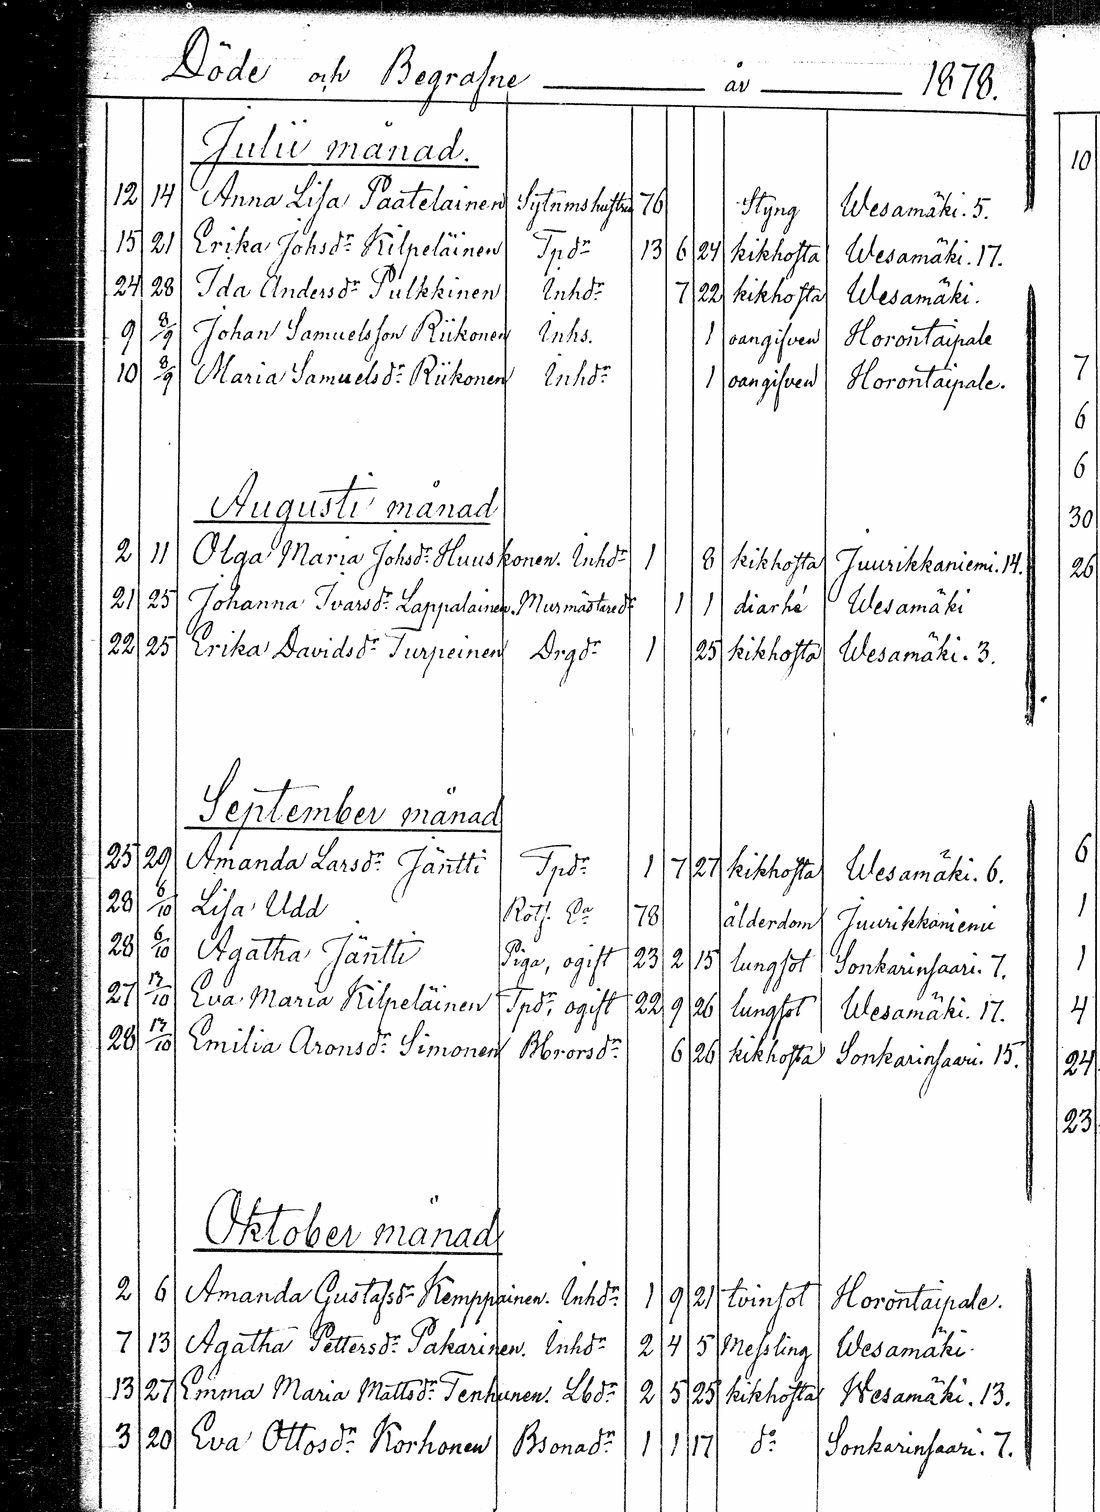 Döde och Begrafne år 1878.
Julii månad.
12 14 Anna Lisa Paatelainen Sytnmshustru 76 Styng Wesamäki. 5.
15 21 Erika Johsdr Kilpeläinen Tpdr 13 6 24 kikhosta Wesamäki. 17.
24 28 Ida Andersdr Pulkkinen Inhdr 7 22 kikhosta Wesamäki.
9 8/9 Johan Samuelsson Riikonen Inhs. 1 oangifven Horontaipale
10 8/9 Maria Samuelsdr Riikonen Inhdr 1 oangifven Horontaipale.
Augusti månad
2 11 Olga Maria Johsdr Huuskonen. Inhdr 1 8 kikhosta Juurikkaniemi. 14.
21 25 Johanna Ivarsdr Lappalainen. Murmästaredr 1 1 diarhé Wesamäki
22 25 Erika Davidsdr Turpeinen Drgdr 1 25 kikhosta Wesamäki. 3.
September månad
25 29 Amanda Larsdr Jäntti Tpdr 1 7 27 kikhosta Wesamäki. 6.
28 6/10 Lisa Udd Rotf. Ea 78 ålderdom Juurikkaniemi
28 6/10 Agatha Jäntti Piga, ogift 23 2 15 lungsot Sonkarinsaari. 7.
27 13/10 Eva Maria Kilpeläinen Tpdr, ogift 22 9 26 lungsot Wesamäki. 17.
28 13/10 Emilia Aronsdr Simonen Bbrorsdr 6 26 kikhosta Sonkarinsaari. 15.
Oktober månad
2 6 Amanda Gustafsdr Kemppainen. Inhdr 1 9 21 tvinsot Horontaipale.
7 13 Agatha Pettersdr Pakarinen. Inhdr 2 4 5 Messling Wesamäki.
13 27 Emma Maria Mattsdr Tenhunen. Lbdr 2 5 25 kikhosta Wesamäki. 13.
3 20 Eva Ottosdr Korhonen Bsonadr 1 1 17 do Sonkarinsaari. 7.
10
7
6
6
30
26
6
1
1
4
24
23